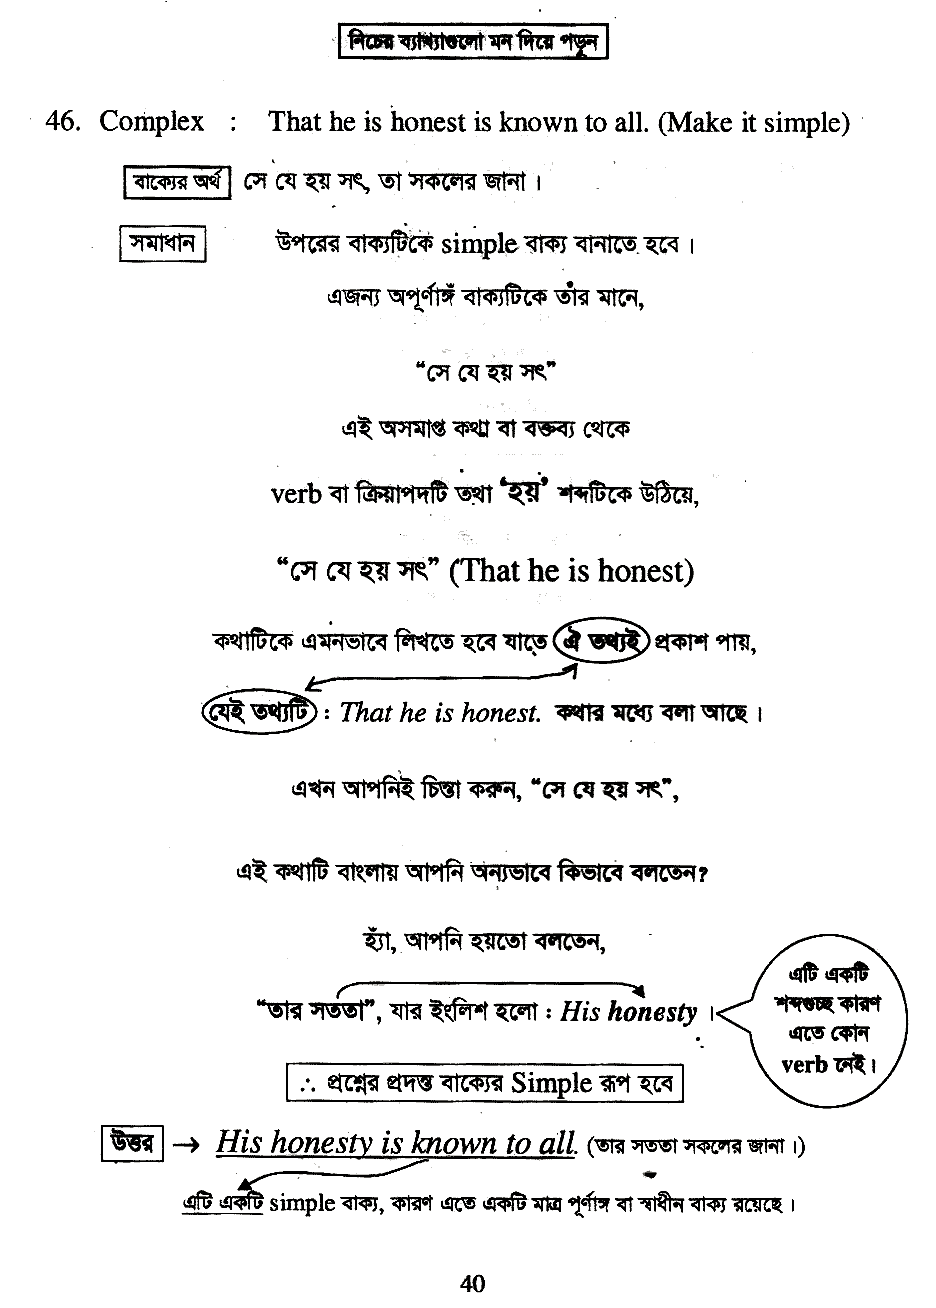 নিচের ব্যাখ্যাগুলো মন দিয়ে পড়ুন
46. Complex : That he is honest is known to all. (Make it simple)
বাক্যের অর্থ সে যে হয় সৎ, তা সকলের জানা।
সমাধান উপরের বাক্যটিকে simple বাক্য বানাতে হবে।
এজন্য অপূর্ণাঙ্গ বাক্যটিকে তাঁর মানে,
“সে যে হয় সৎ”
এই অসমাপ্ত কথা বা বক্তব্য থেকে
verb বা ক্রিয়াপদটি তথা ‘হয়’ শব্দটিকে উঠিয়ে,
“সে যে হয় সৎ” (That he is honest)
কথাটিকে এমনভাবে লিখতে হবে যাতে ঐ তথ্যই প্রকাশ পায়,
যেই তথ্যটি : That he is honest. কথার মধ্যে বলা আছে।
এখন আপনিই চিন্তা করুন, “সে যে হয় সৎ”,
এই কথাটি বাংলায় আপনি অন্যভাবে কিভাবে বলতেন?
হ্যাঁ, আপনি হয়তো বলতেন,
“তার সততা”, যার ইংলিশ হলো : His honesty ।
এটি একটি
শব্দগুচ্ছ কারণ
এতে কোন
verb নেই।
∴ প্রশ্নের প্রদত্ত বাক্যের Simple রূপ হবে
উত্তর → His honesty is known to all. (তার সততা সকলের জানা।)
এটি একটি simple বাক্য, কারণ এতে একটি মাত্র পূর্ণাঙ্গ বা স্বাধীন বাক্য রয়েছে।
40